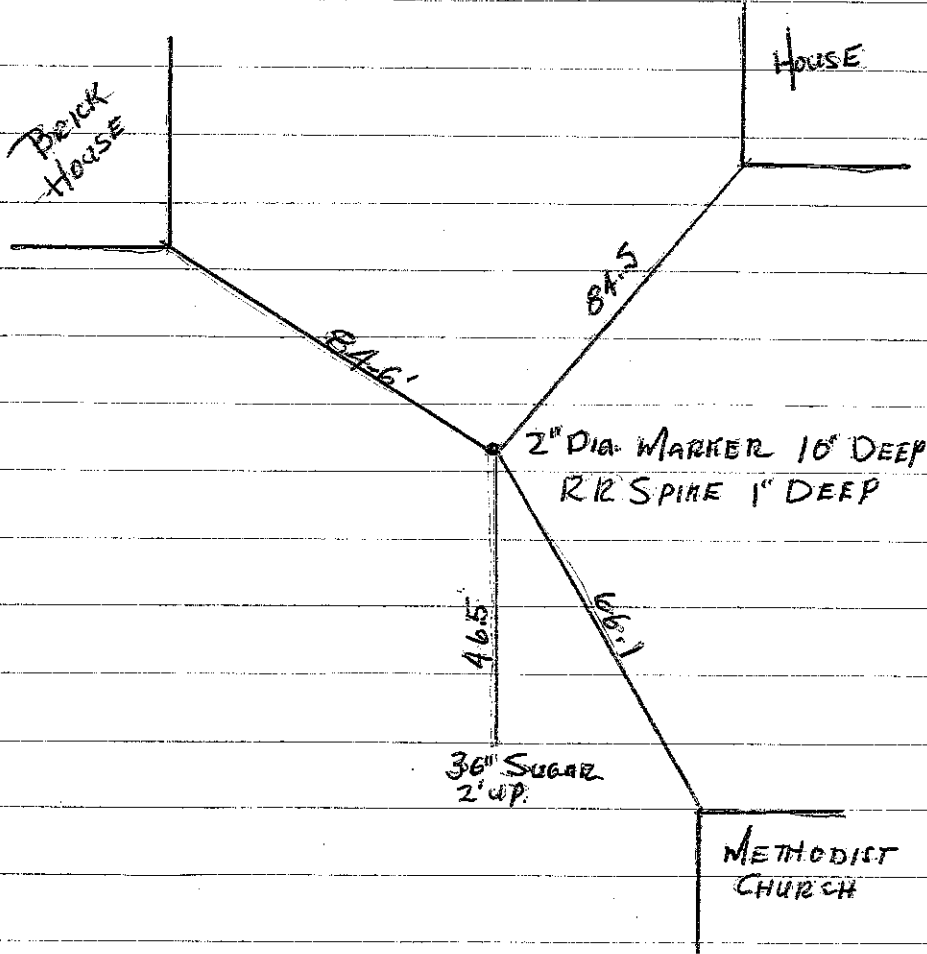 HOUSE
BRICK
HOUSE
84.5
84.6'
2" DIA. MARKER 10" DEEP
RR SPIKE 1" DEEP
46.5'
66.1
36" SUGAR
2' UP.
METHODIST
CHURCH